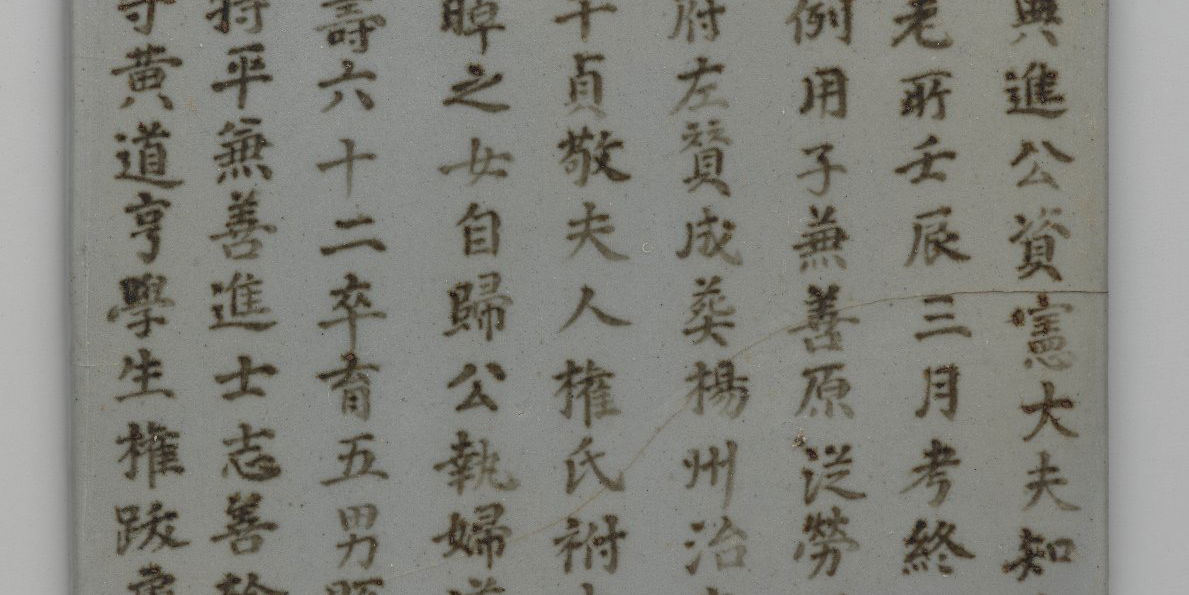 興進公資憲大夫知
老所壬辰三月考終
例用子兼善原從勞
府左贊成葬楊州治
十貞敬夫人權氏祔
晫之女自歸公執婦
壽六十二卒育五男
將平兼善進士志善
守黃道亨學生權跋